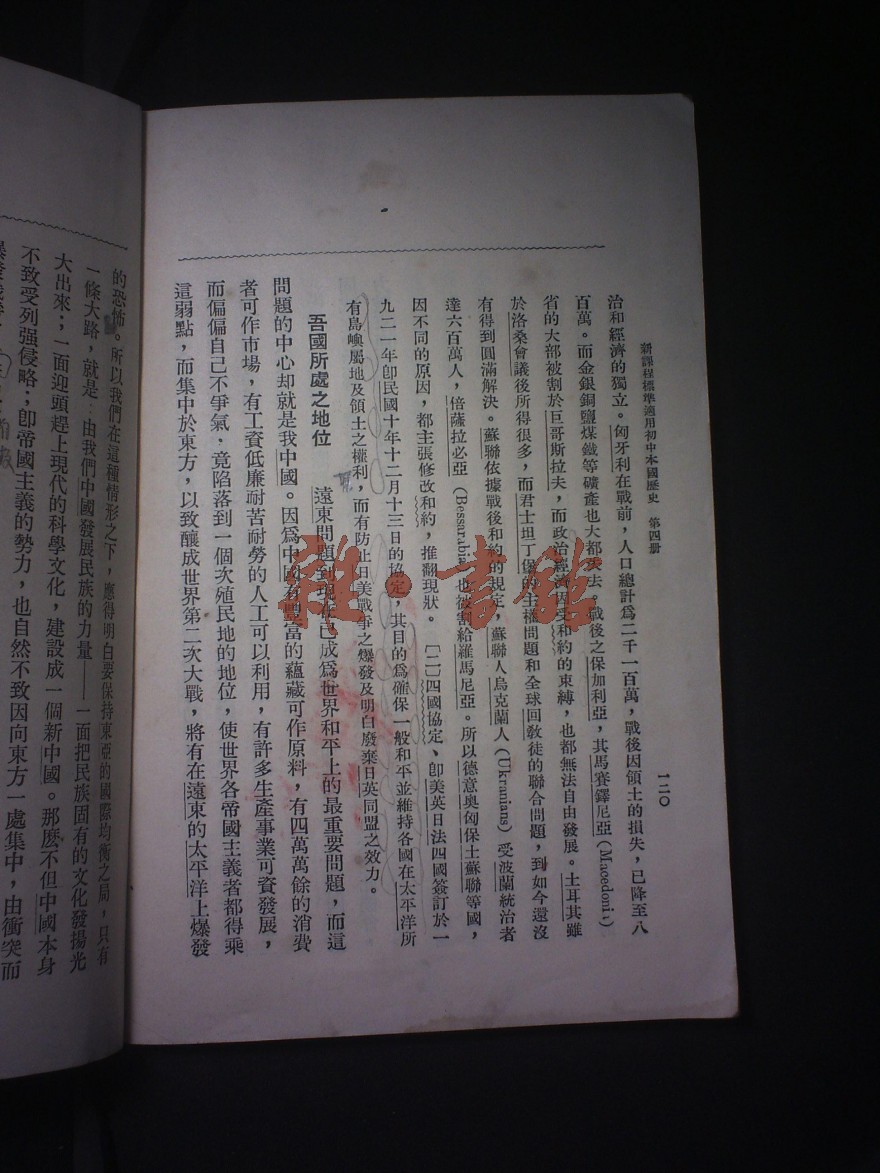 新課程標準適用初中本國歷史　第四册
一二〇
治和經濟的獨立。匈牙利在戰前，人口總計爲二千一百萬，戰後因領土的損失，已降至八
百萬。而金銀銅鹽煤鐵等礦產也大都失去。戰後之保加利亞，其馬賽鐸尼亞(Macedonia)
省的大部被割於巨哥斯拉夫，而政治經濟因受和約的束縛，也都無法自由發展。土耳其雖
於洛桑會議後所得很多，而君士坦丁堡的主權問題和全球回敎徒的聯合問題，到如今還沒
有得到圓滿解決。蘇聯依據戰後和約的規定，蘇聯人烏克蘭人(Ukranians)受波蘭統治者
達六百萬人，倍薩拉必亞(Bessarabia)也被割給羅馬尼亞。所以德意奧匈保土蘇聯等國，
因不同的原因，都主張修改和約，推翻現狀。〔一二〕四國協定、卽美英日法四國簽訂於一
九二一年卽民國十年十二月十三日的協定，其目的爲確保一般和平並維持各國在太平洋所
有島嶼屬地及領土之權利，而有防止日美戰爭之爆發及明白廢棄日英同盟之效力。
吾國所處之地位　遠東問題到現在已成爲世界和平上的最重要問題，而這
問題的中心却就是我中國。因爲中國有豐富的蘊藏可作原料，有四萬萬餘的消費
者可作市場，有工資低廉耐苦耐勞的人工可以利用，有許多生產事業可資發展，
而偏偏自己不爭氣，竟陷落到一個次殖民地的地位，使世界各帝國主義者都得乘
這弱點，而集中於東方，以致釀成世界第二次大戰，將有在遠東的太平洋上爆發
的恐怖。所以我們在這種情形之下，應得明白要保持東亞的國際均衡之局，只有
一條大路，就是：由我們中國發展民族的力量——一面把民族固有的文化發揚光
大出來；一面迎頭趕上現代的科學文化，建設成一個新中國。那麼不但中國本身
不致受列强侵略；卽帝國主義的勢力，也自然不致因向東方一處集中，由衝突而
雜·書館